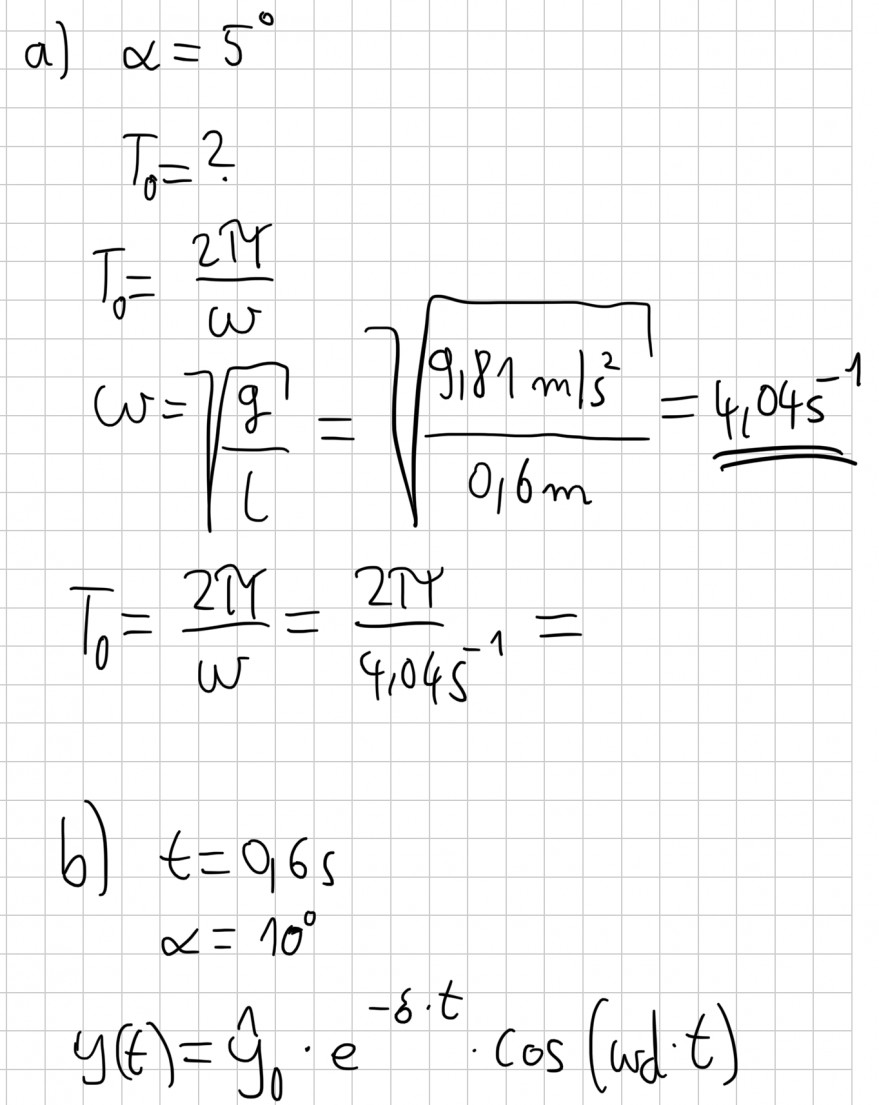 a) α = 5°
T₀ = ?
T₀ = 2π/ω
ω = √(g/l) = √(9,81 m/s² / 0,6 m) = 4,04 s⁻¹
T₀ = 2π/ω = 2π/4,04 s⁻¹ =
b) t = 0,6 s
α = 10°
y(t) = ŷ₀ · e^(-δ·t) · cos(ωd·t)